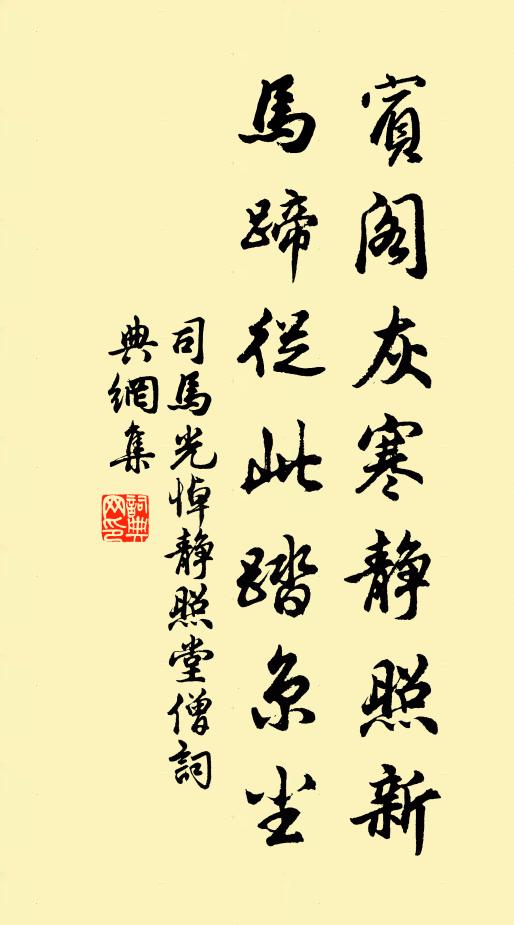 賓閣灰寒静照新
馬蹄從此踏京尘
司馬光悼静照堂僧詞
典網集
詞典
网印